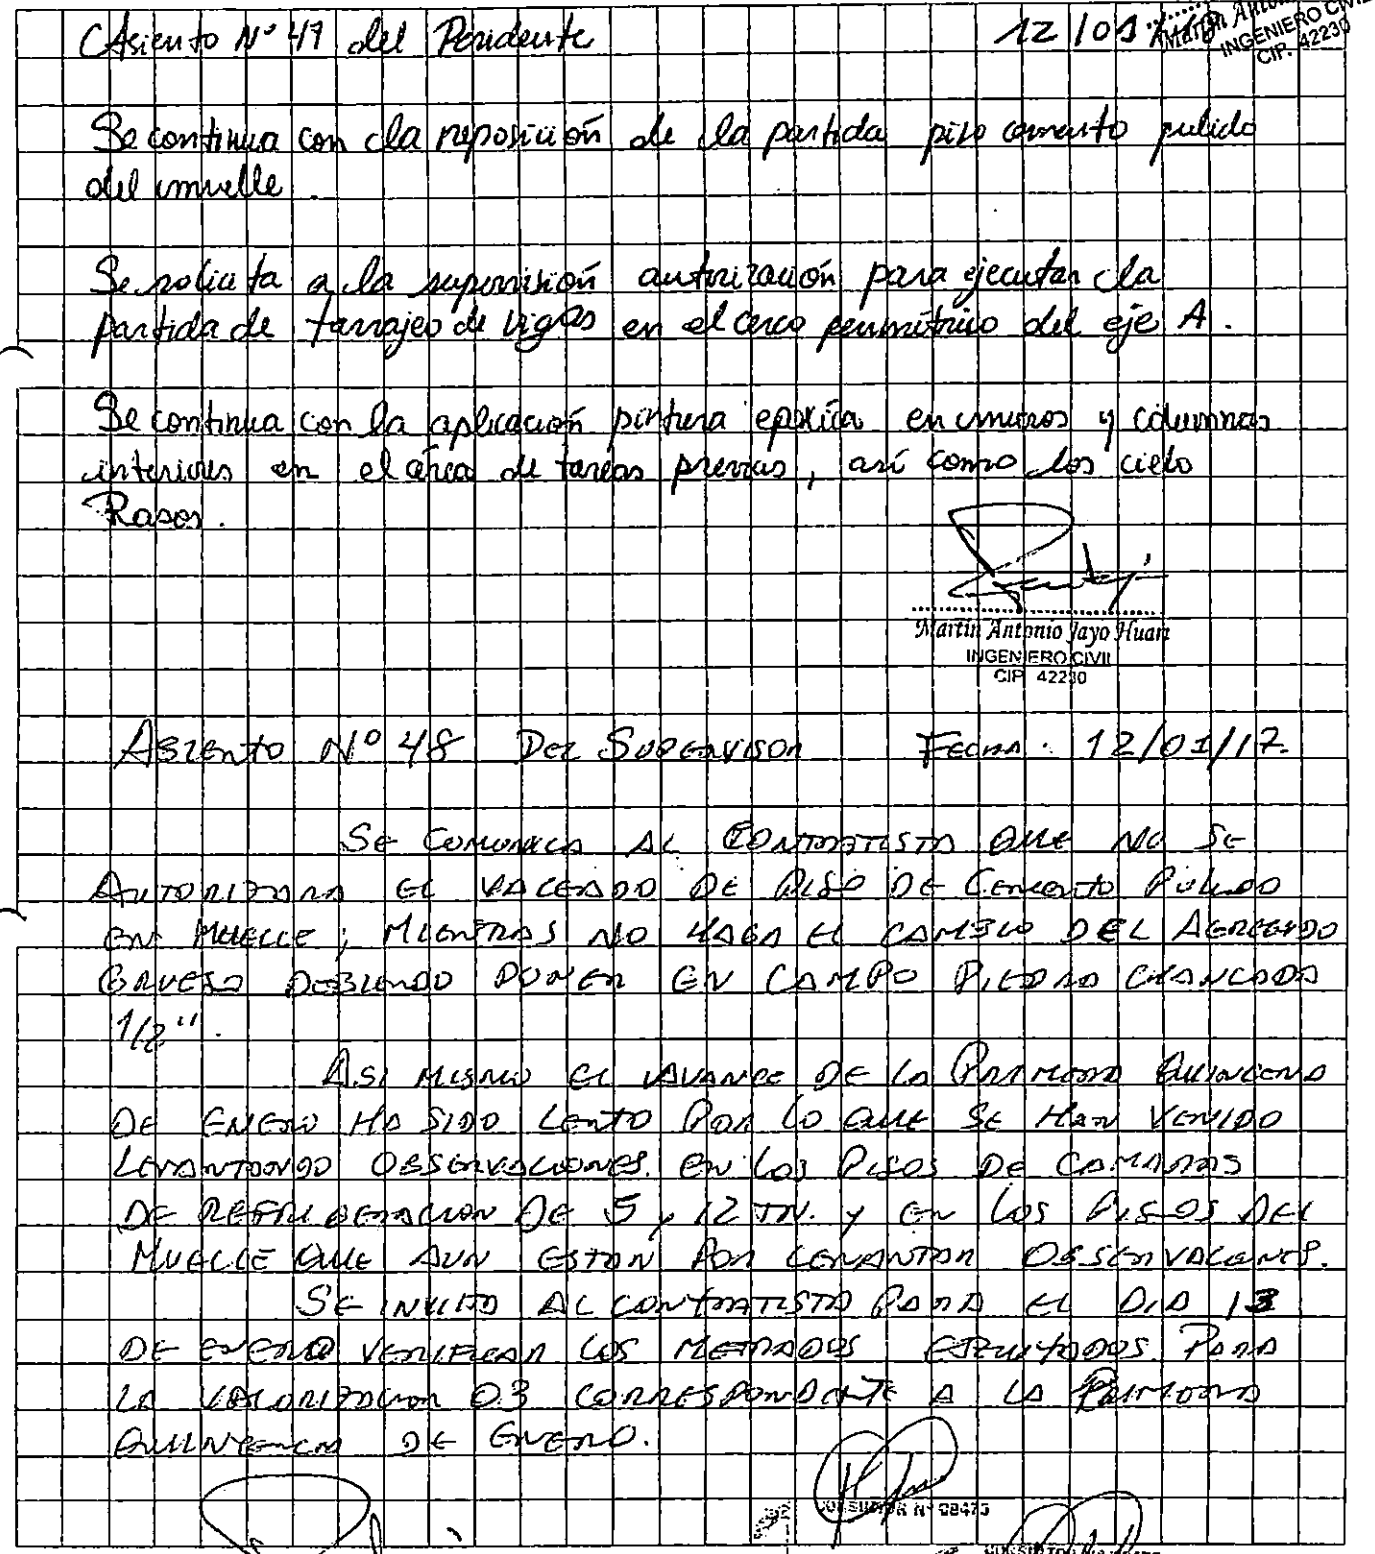 Asiento Nº 47 del Residente 12/01/17
Martín Anto
INGENIERO CIVIL
CIP. 42230
Se continua con la reposición de la partida piso cemento pulido
del muelle.
Se solicita a la supervisión autorización para ejecutar la
partida de tarrajeo de vigas en el cerco perimétrico del eje A.
Se continua con la aplicación pintura epoxica en muros y columnas
interiores en el área de tareas previas, así como los cielo
Rasos.
Martín Antonio Jayo Huari
INGENIERO CIVIL
CIP 42230
ASIENTO Nº 48 DEL SUPERVISOR FECHA: 12/01/17.
SE COMUNICA AL CONTRATISTA QUE NO SE
AUTORIZARA EL VACEADO DE PISO DE CEMENTO PULIDO
EN MUELLE; MIENTRAS NO HAGA EL CAMBIO DEL AGREGADO
GRUESO DEBIENDO PONER EN CAMPO PIEDRA CHANCADA
1/2".
ASI MISMO EL AVANCE DE LA PRIMERA QUINCENA
DE ENERO HA SIDO LENTO POR LO QUE SE HAN VENIDO
LEVANTANDO OBSERVACIONES. EN LOS PISOS DE CAMARAS
DE REFRIGERACION DE 5 y 12 TN. Y EN LOS PISOS DEL
MUELLE QUE AUN ESTAN POR LEVANTAR OBSERVACIONES.
SE INVITA AL CONTRATISTA PARA EL DIA 13
DE ENERO VERIFICAR LOS METRADOS EJECUTADOS PARA
LA VALORIZACION 03 CORRESPONDIENTE A LA PRIMERA
QUINCENA DE ENERO.
CONSULTOR Nº C8475